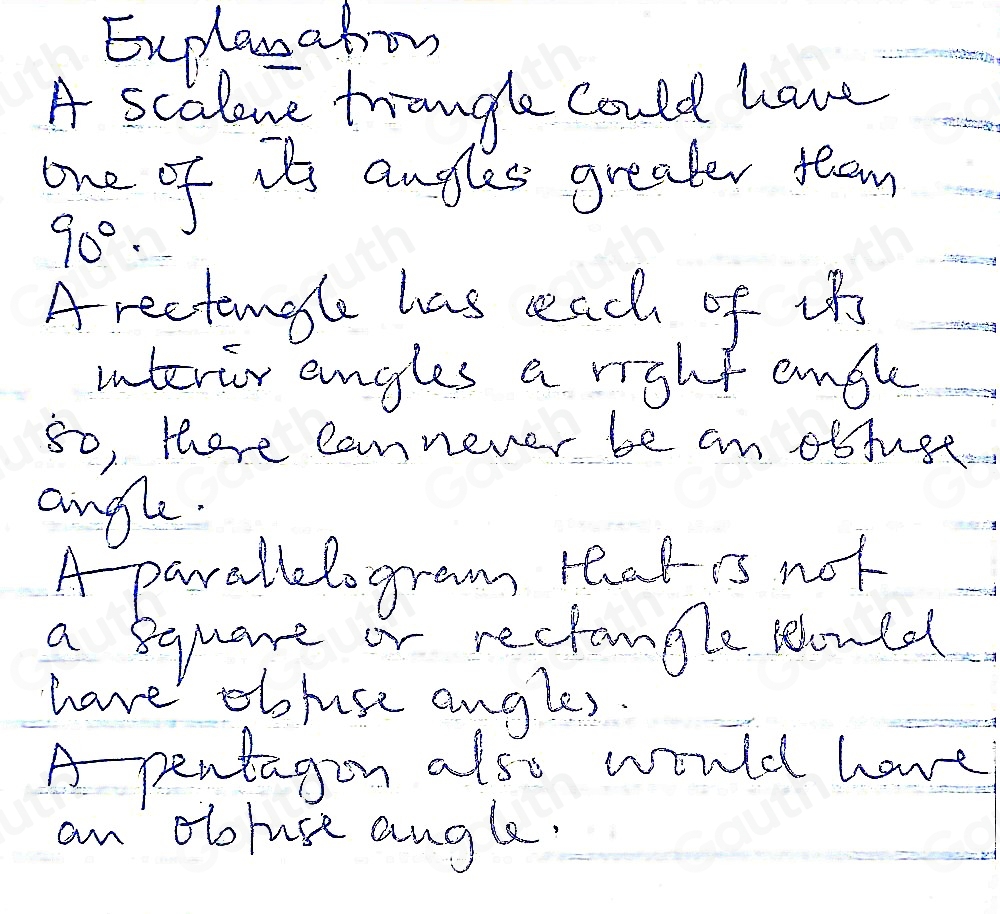 Explanation
A scalene triangle could have
one of its angles greater than
90°.
A rectangle has each of its
interior angles a right angle
so, there can never be an obtuse
angle.
A parallelogram that is not
a square or rectangle would
have obtuse angles.
A pentagon also would have
an obtuse angle.